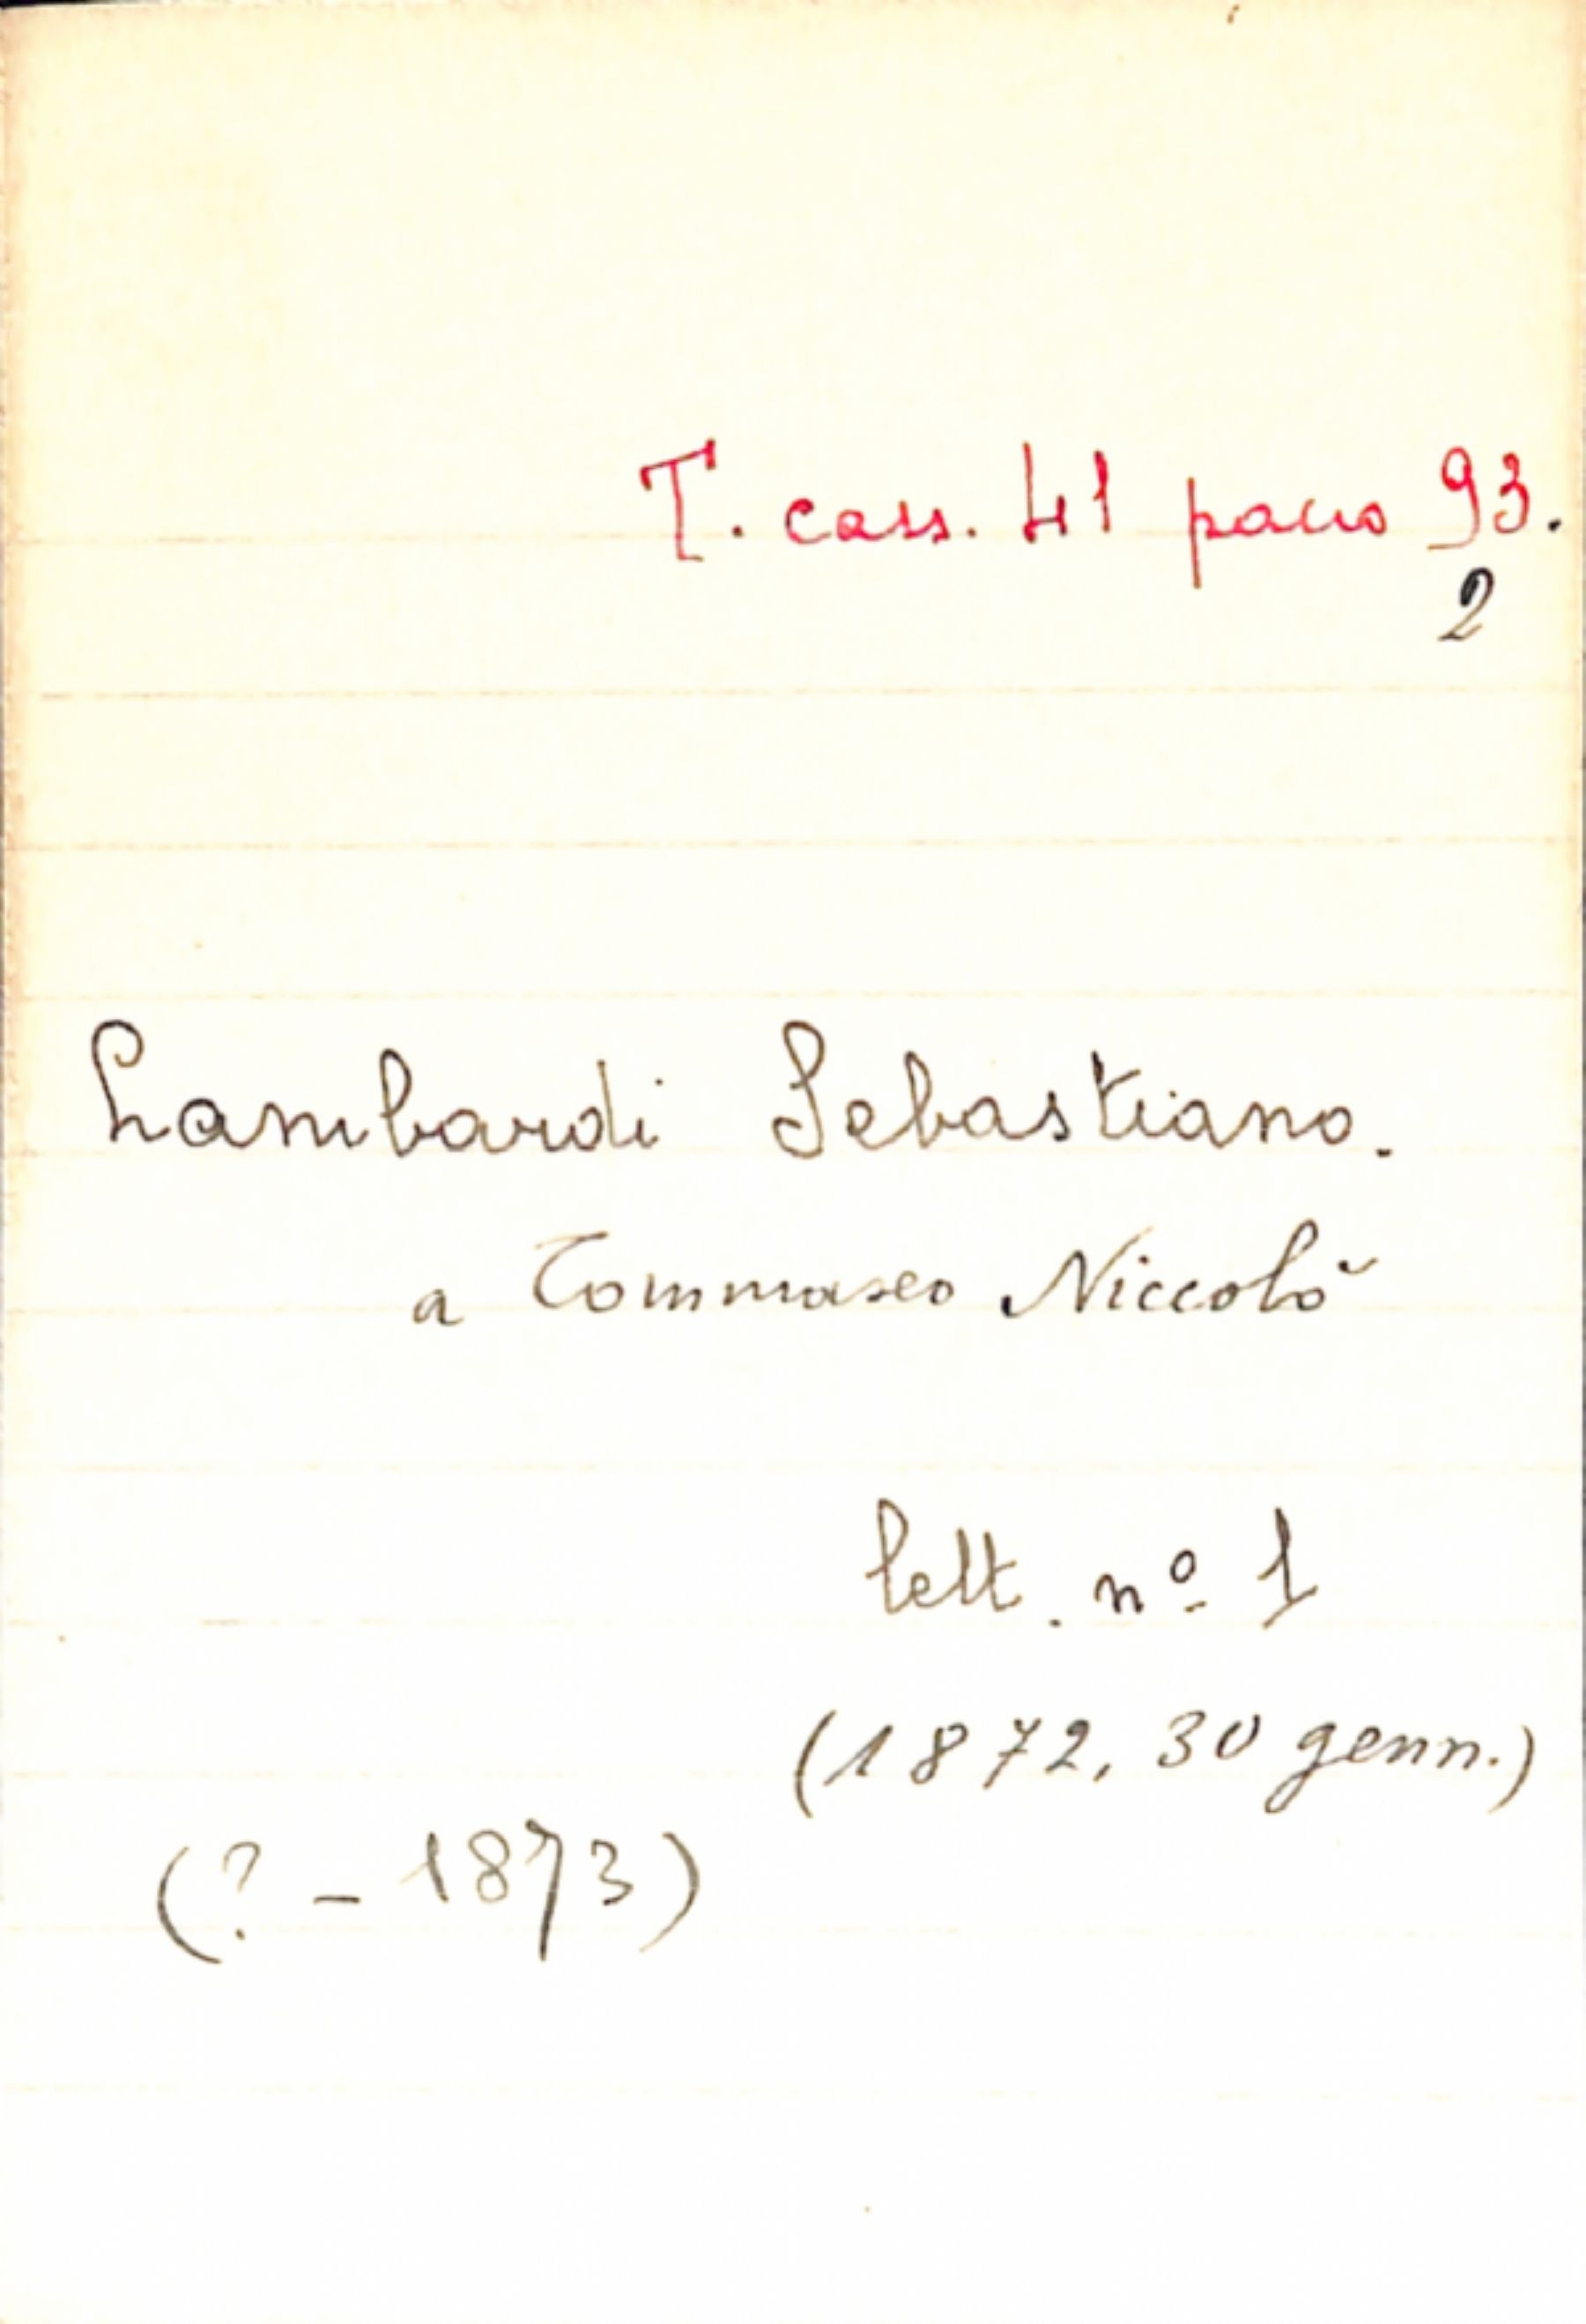 T. cass. 41 pacco 93.
2
Lambardi Sebastiano.
a Tommaseo Niccolò
lett. nº 1
(1872, 30 genn.)
(? - 1873)